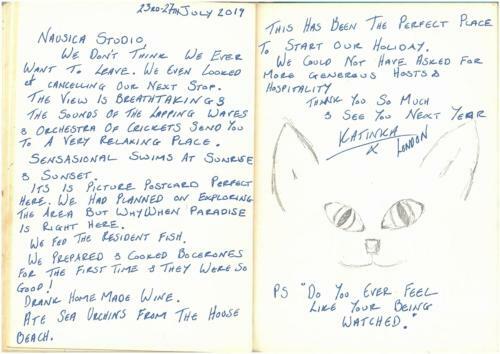 23RD-27TH JULY 2019
NAUSICA STUDIO
WE DON'T THINK WE EVER
WANT TO LEAVE. WE EVEN LOOKED
at CANCELLING OUR NEXT STOP.
THE VIEW IS BREATHTAKING &
THE SOUNDS OF THE LAPPING WAVES
& ORCHESTRA OF CRICKETS SEND YOU
TO A VERY RELAXING PLACE.
SENSASIONAL SWIMS AT SUNRISE
& SUNSET.
ITS IS PICTURE POSTCARD PERFECT
HERE. WE HAD PLANNED ON EXPLORING
THE AREA BUT WHY WHEN PARADISE
IS RIGHT HERE.
WE FED THE RESIDENT FISH.
WE PREPARED & COOKED BOCERONES
FOR THE FIRST TIME & THEY WERE SO
GOOD!
DRANK HOME MADE WINE.
ATE SEA URCHINS FROM THE HOUSE
BEACH.
THIS HAS BEEN THE PERFECT PLACE
TO START OUR HOLIDAY.
WE COULD NOT HAVE ASKED FOR
MORE GENEROUS HOSTS &
HOSPITALITY
THANK YOU SO MUCH
& SEE YOU NEXT YEAR
KATINKA
X LONDON
PS "DO YOU EVER FEEL
LIKE YOUR BEING
WATCHED."